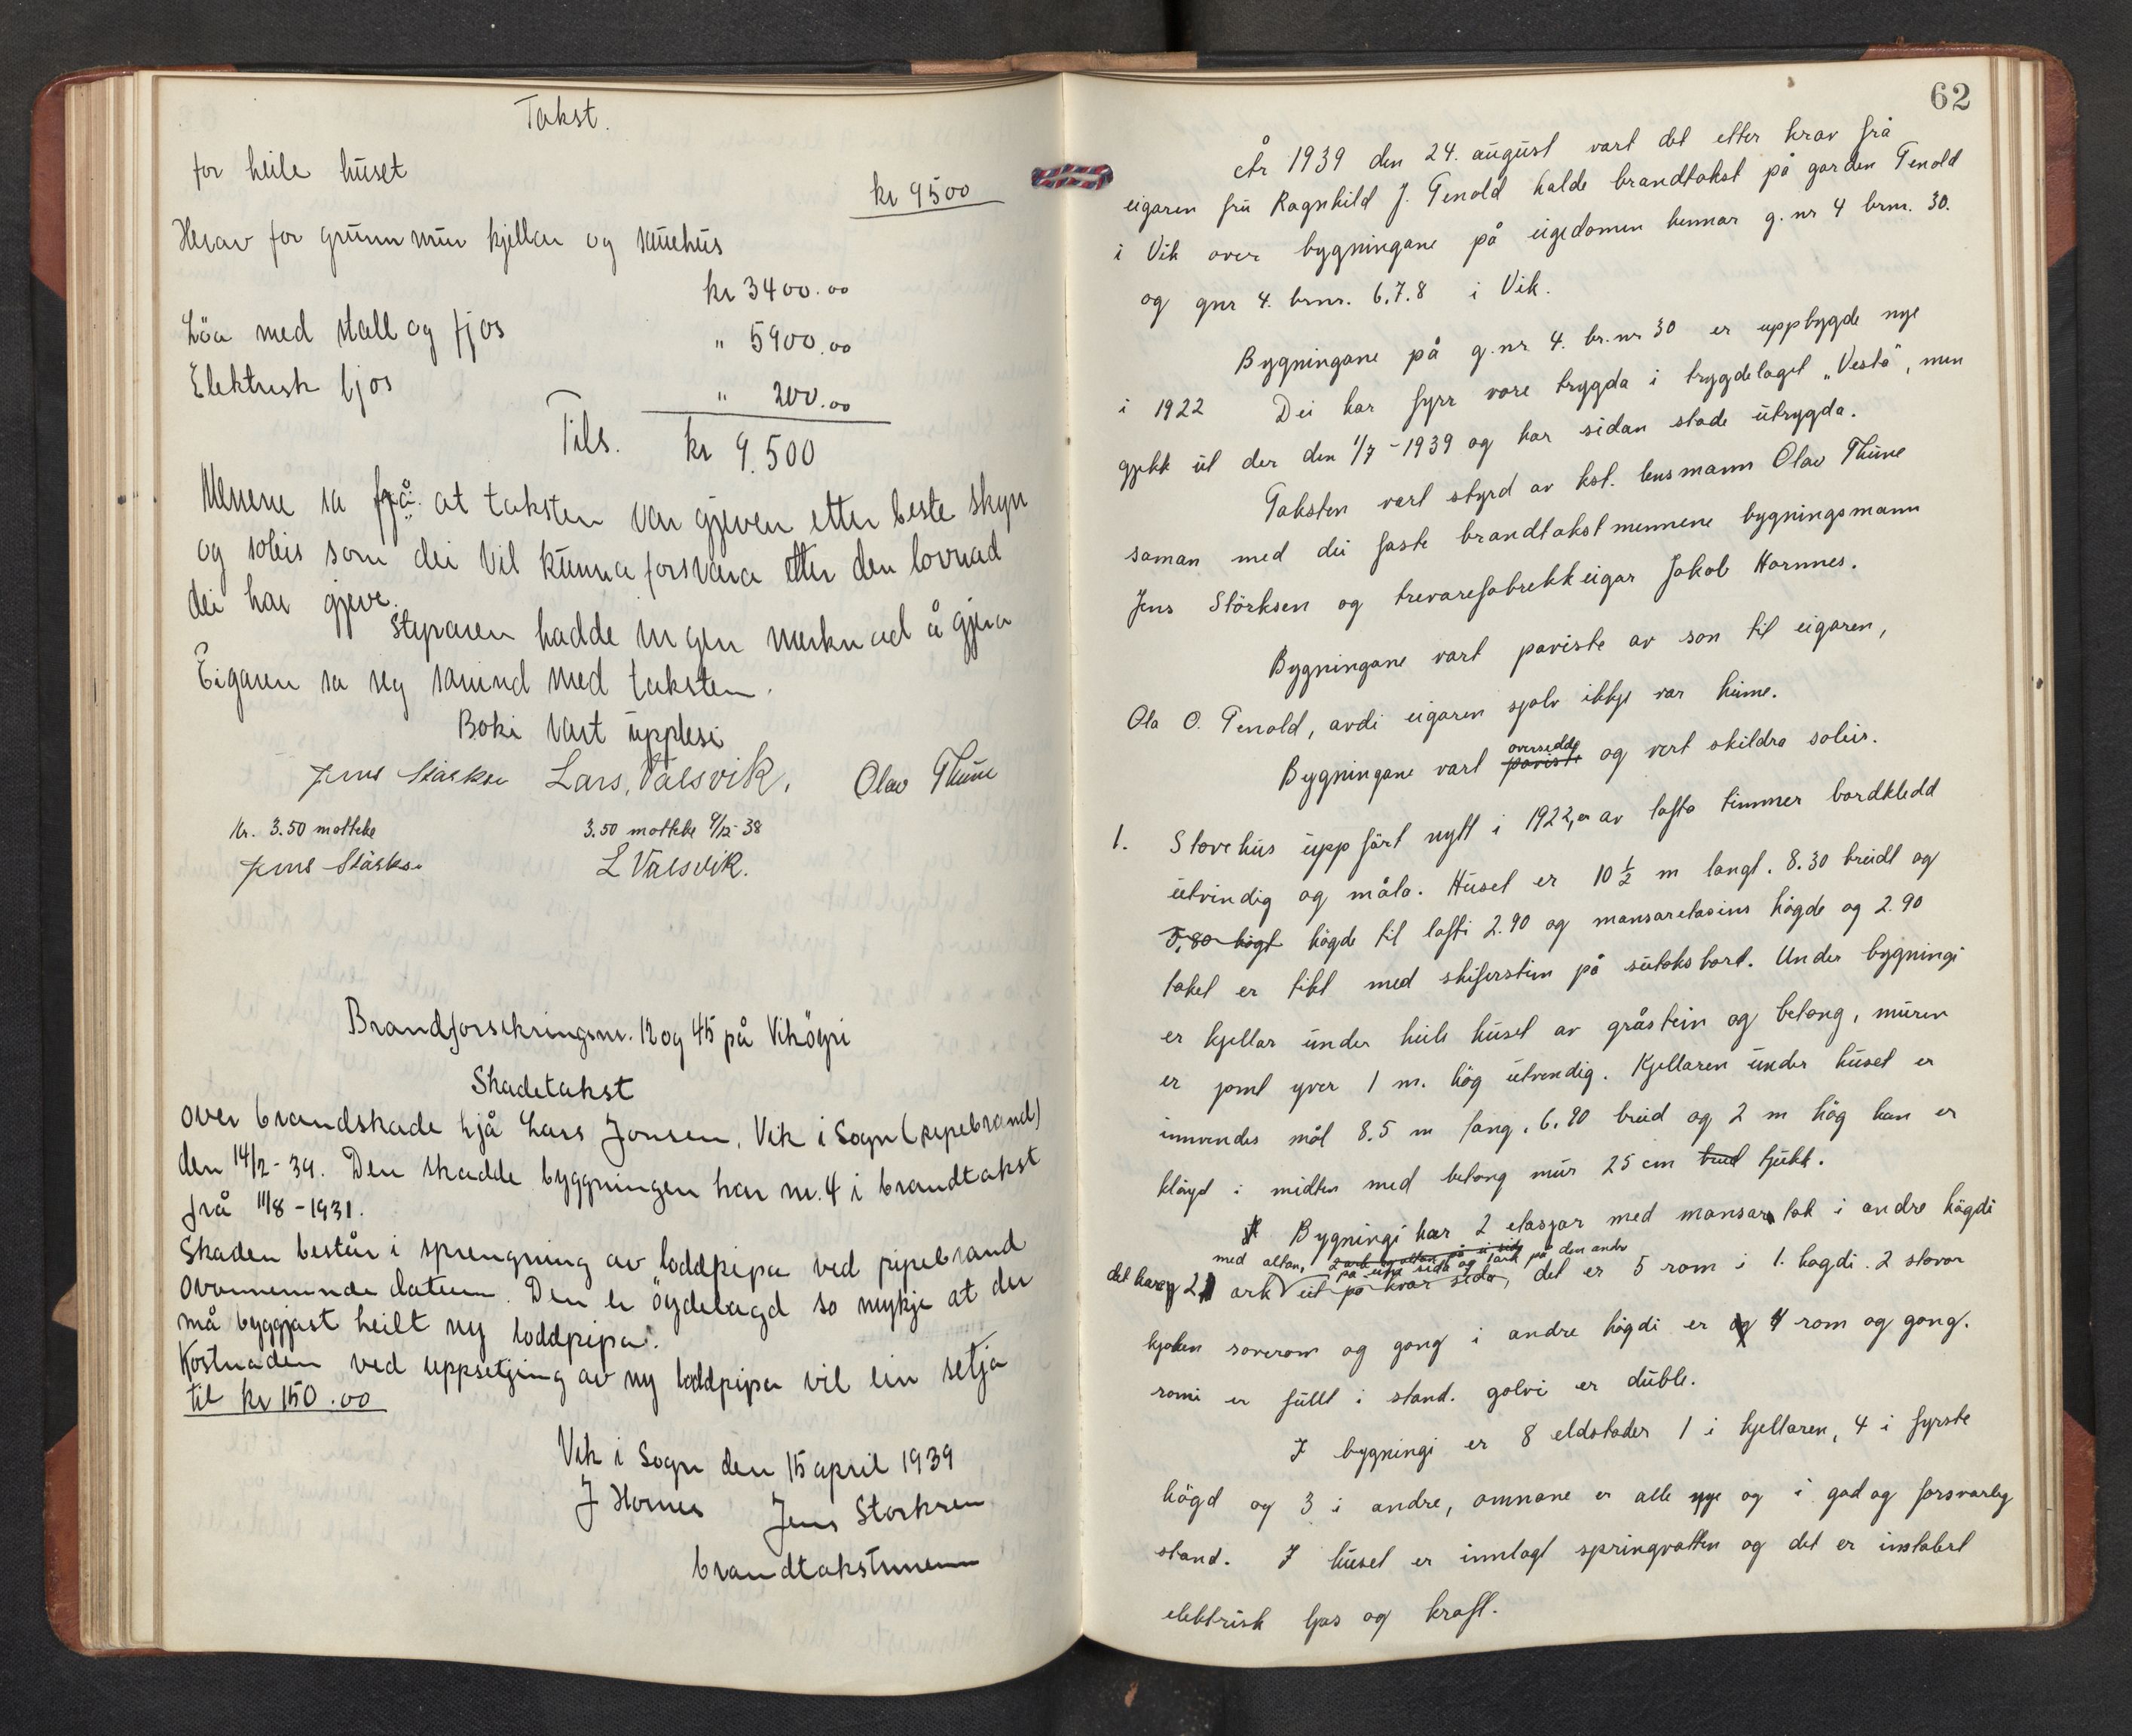 Takst.
for heile huset
kr 9500
Herav for grunnmur kjellar og sauehus
kr 3400.00
Löa med stall og fjos
" 5900.00
Elektrisk ljos
" 200.00
Tils. kr 9.500
Menene sa frå at taksten var gjeven etter beste skyn
og soleis som dei vil kunna forsvara etter den lovnad
dei har gjeve.
Styraren hadde ingen merknad å gjera
Eigaren sa seg samd med taksten.
Boki vart upplesi
Jens Stärksen Lars Valsvik. Olav Thune
Kr. 3.50 motteke 3.50 motteke 9/12-38
Jens Stärksen L Valsvik.
Brandforsikringsnr. 12 og 45 på Viköyri
Skadetakst
over brandskade hjå Lars Jonsen, Vik i Sogn (pipebrand)
den 14/2-39. Den skadde byggningen har nr. 4 i brandtakst
frå 11/8-1931.
Skaden består i sprengning av loddpipa ved pipebrand
ovannemnde datum. Den er öydelagd so mykje at der
må byggjast heilt ny loddpipa.
Kostnaden ved uppsetjing av ny loddpipa vil ein setja
til kr 150.00
Vik i Sogn den 15 april 1939
J Hornes Jens Storksen
brandtakstmenn
62
År 1939 den 24. august vart det etter krav frå
eigaren fru Ragnhild J. Tenold halde brandtakst på garden Tenold
i Vik over bygningane på eigedomen hennar g. nr 4 brnr. 30.
og gnr 4. brnr. 6.7.8 i Vik.
Bygningane på g.nr. 4. br.nr 30 er uppbygde nye
i 1922 Dei har fyrr vore trygda i trygdelaget „Vesta", men
gjekk ut der den 1/7-1939 og har sidan stade utrygda.
Taksten vart styrd av kst. lensmann Olav Thune
saman med dei faste brandtakstmennene bygningsmann
Jens Störksen og trevarefabrikkeigar Jakob Hornnes.
Bygningane vart paviste av son til eigaren,
Ola O. Tenold, avdi eigaren sjølv ikkje var heime.
oversedde
Bygningane vart paviste og vert skildra soleis.
1. Stovehus uppfört nytt i 1922, er av lafta timmer bordkledd
utvendig og måla. Huset er 10 1/2 m langt. 8.30 breidt og
5,80 högt högde til lofti 2.90 og mansaretasins högde og 2.90
taket er tekt med skiferstein på sutaksbord. Under bygningi
er kjellar under heile huset av gråstein og betong, muren
er jamt yver 1 m. hög utvendig. Kjellaren under huset er
innvendes mål 8.5 m lang, 6,90 breid og 2 m hög han er
klöyvd i midten med betong mur 25 cm breid tjukk.
Bygningi har 2 etasjar med mansartak i andre högdi
med altan, 2 ark og altan på ei side
på eina sida og 1 ark på den andre
det har 2 ark ut på kvar side, det er 5 rom i 1. hogdi. 2 stovor
kjøken soverom og gang i andre högdi er og 4 rom og gang.
romi er fullt i stand. golvi er duble.
I bygningi er 8 eldstader 1 i kjellaren, 4 i fyrste
högd og 3 i andre, omnane er alle nye og i god og forsvarleg
stand. I huset er innlagt springvatten og det er instalert
elektrisk ljos og kraft.